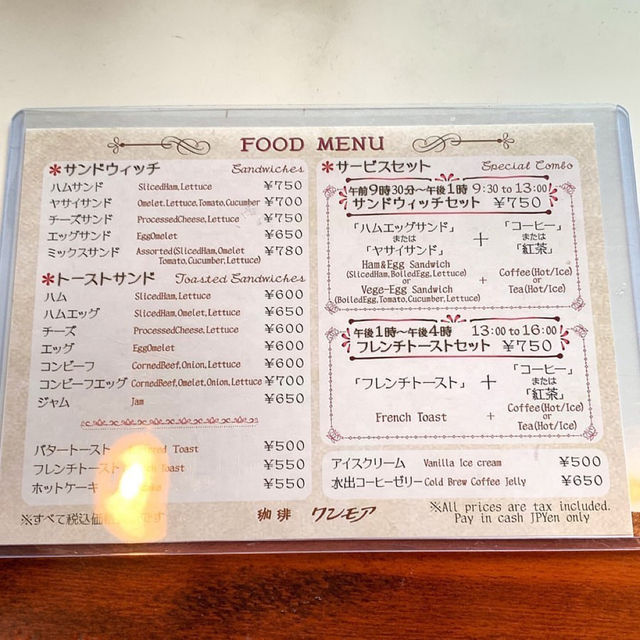 FOOD MENU
*サンドウィッチ Sandwiches
ハムサンド SlicedHam,Lettuce ¥750
ヤサイサンド Omelet,Lettuce,Tomato,Cucumber ¥700
チーズサンド ProcessedCheese,Lettuce ¥750
エッグサンド EggOmelet ¥650
ミックスサンド Assorted(SlicedHam,Omelet ¥780
Tomato,Cucumber,Lettuce)
*トーストサンド Toasted Sandwiches
ハム SlicedHam,Lettuce ¥600
ハムエッグ SlicedHam,Omelet,Lettuce ¥650
チーズ ProcessedCheese,Lettuce ¥600
エッグ EggOmelet ¥600
コンビーフ CornedBeef,Onion,Lettuce ¥600
コンビーフエッグ CornedBeef,Omelet,Onion,Lettuce ¥700
ジャム Jam ¥650
バタートースト Toast ¥500
フレンチトースト Toast ¥550
ホットケーキ ¥550
※すべて税込価 です
*サービスセット Special Combo
午前9時30分～午後1時 9:30 to 13:00
サンドウィッチセット ¥750
「ハムエッグサンド」
または
「ヤサイサンド」
+
「コーヒー」
または
「紅茶」
Ham&Egg Sandwich
(SlicedHam,BoiledEgg,Lettuce)
or
Vege-Egg Sandwich
(BoiledEgg,Tomato,Cucumber,Lettuce)
+
Coffee(Hot/Ice)
or
Tea(Hot/Ice)
午後1時～午後4時 13:00 to 16:00
フレンチトーストセット ¥750
「フレンチトースト」
+
「コーヒー」
または
「紅茶」
French Toast
+
Coffee(Hot/Ice)
or
Tea(Hot/Ice)
アイスクリーム Vanilla Ice cream ¥500
水出コーヒーゼリー Cold Brew Coffee Jelly ¥650
珈琲 ワンモア
※All prices are tax included.
Pay in cash JPYen only